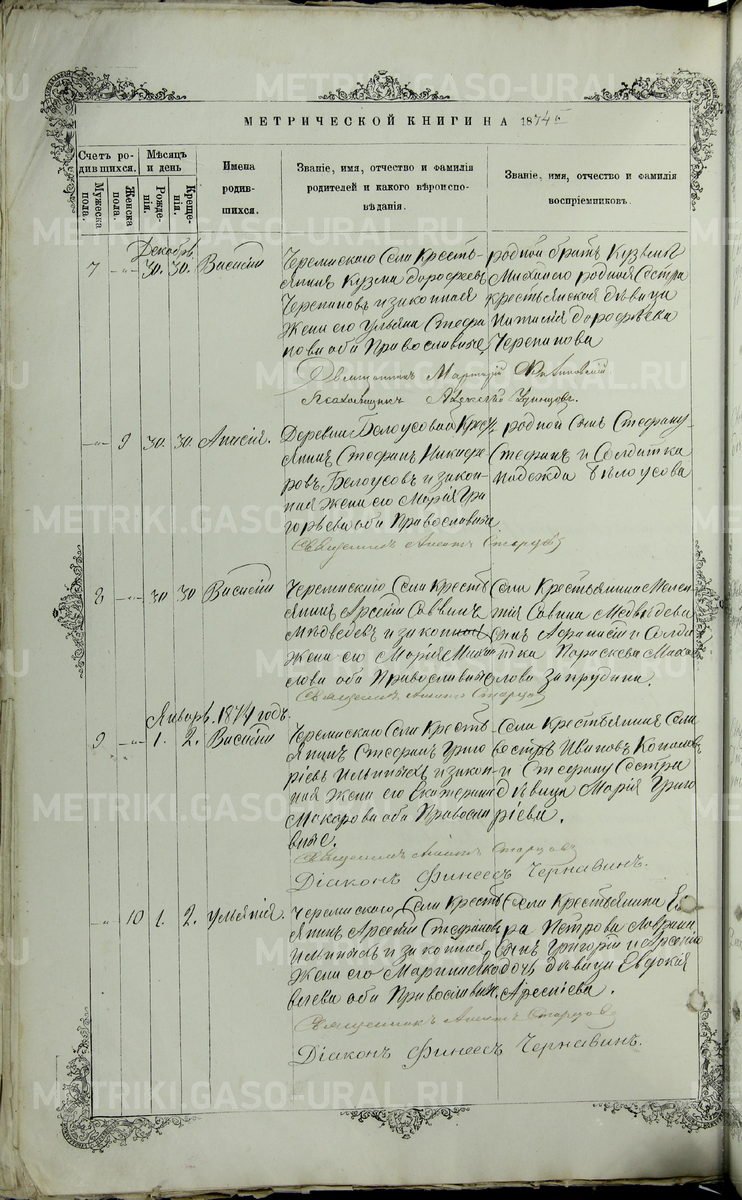 МЕТРИЧЕСКОЙ КНИГИ НА 1874 г.
Счетъ родившихся.
Мужеска пола.
Женска пола.
Мѣсяцъ и день
Рожденія.
Крещенія.
Имена родившихся.
Званіе, имя, отчество и фамилія родителей и какого вѣроисповѣданія.
Званіе, имя, отчество и фамилія воспріемниковъ.
Декабрь.
7 -"- 30. 30. Василій
Черемискаго Села Кресть-
янинъ Кузма Дорофеевъ
Черепановъ и законная
жена его Ульяна Стефа
нова оба Православные,
родной братъ Кузьмы
Михаило родная Сестра
крестьянская дѣвица
Дорофѣева
Черепанова
-"- 9 30 30 Анисія.
Деревни Белоусовой Крест
янинъ Стефанъ Никифо
ровъ Белоусовъ и закон-
ная жена его Марія Гри
горьева оба Православные
родной Сынъ Стефану
Стефанъ и Солдатка
Надежда Бѣлоусова
Священникъ Старцовъ
8 -"- 30 30 Василій
Черемискаго Села Кресть
янинъ Арсеній Саввинъ
Медведевъ и законная
жена его Марія Михаи
лова оба Православные
Села Крестьянина Мелен
тія Савина Медвѣдева
Сынъ Афанасій и Солда
тка Параскева Михаи
лова Запрудина.
Священникъ Старцовъ
Январь. 1874 годъ.
9 -"- 1. 2. Василій
Черемискаго Села Кресть
янинъ Стефанъ Григо
рьевъ Ильиныхъ и закон-
ная жена его Екатерина
Макарова оба Правосла
вные.
Села Крестьянинъ Сели
вестръ Ивановъ
и Стефану Сестра
дѣвица Марія Григо
ріева.
Священникъ Старцовъ
Діаконъ Финеесъ Чернавинъ.
-"- 10 1. 2. Ульянія.
Черемискаго Села Кресть
янинъ Арсеній Стефановъ
Ильиныхъ и законная
жена его Марина Яко
влева оба Православн.
Села Крестьянина
Петрова
Сынъ Григорій и Арсенію
дочь дѣвица Евдокія
Арсеніева.
Священникъ Старцовъ
Діаконъ Финеесъ Чернавинъ.
METRIKI.GASO-URAL.RU